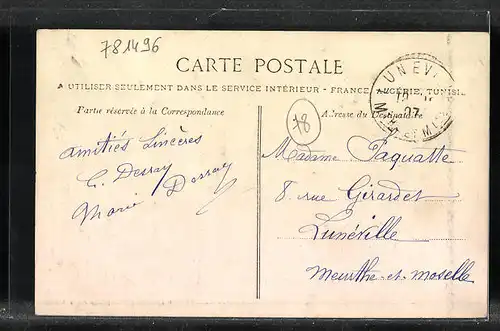 781496
CARTE POSTALE
A UTILISER SEULEMENT DANS LE SERVICE INTÉRIEUR - FRANCE, ALGÉRIE, TUNISIE
Partie réservée à la Correspondance
Adresse du Destinataire
78
UNEVI
07
amitiés sincères
C. Dessay
Marie Dessay
Madame Paquatte
8 rue Girardet
Lunéville
Meurthe-et-Moselle